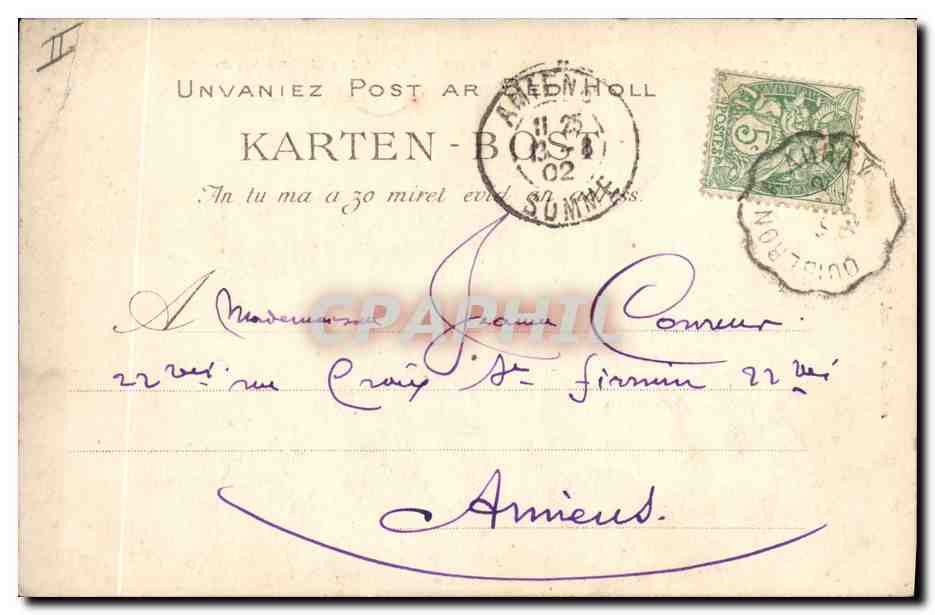 II
UNVANIEZ POST AR BED HOLL
KARTEN-BOST
An tu ma a zo miret evid an adress.
AMIENS
11 25
13 - 8
02
SOMME
POSTES
5c
AURAY
QUIBERON
A Mademoiselle Jeanne Couvreur.
22 bis rue Croix St firmin 22 bis
Amiens.
CPAPHIL